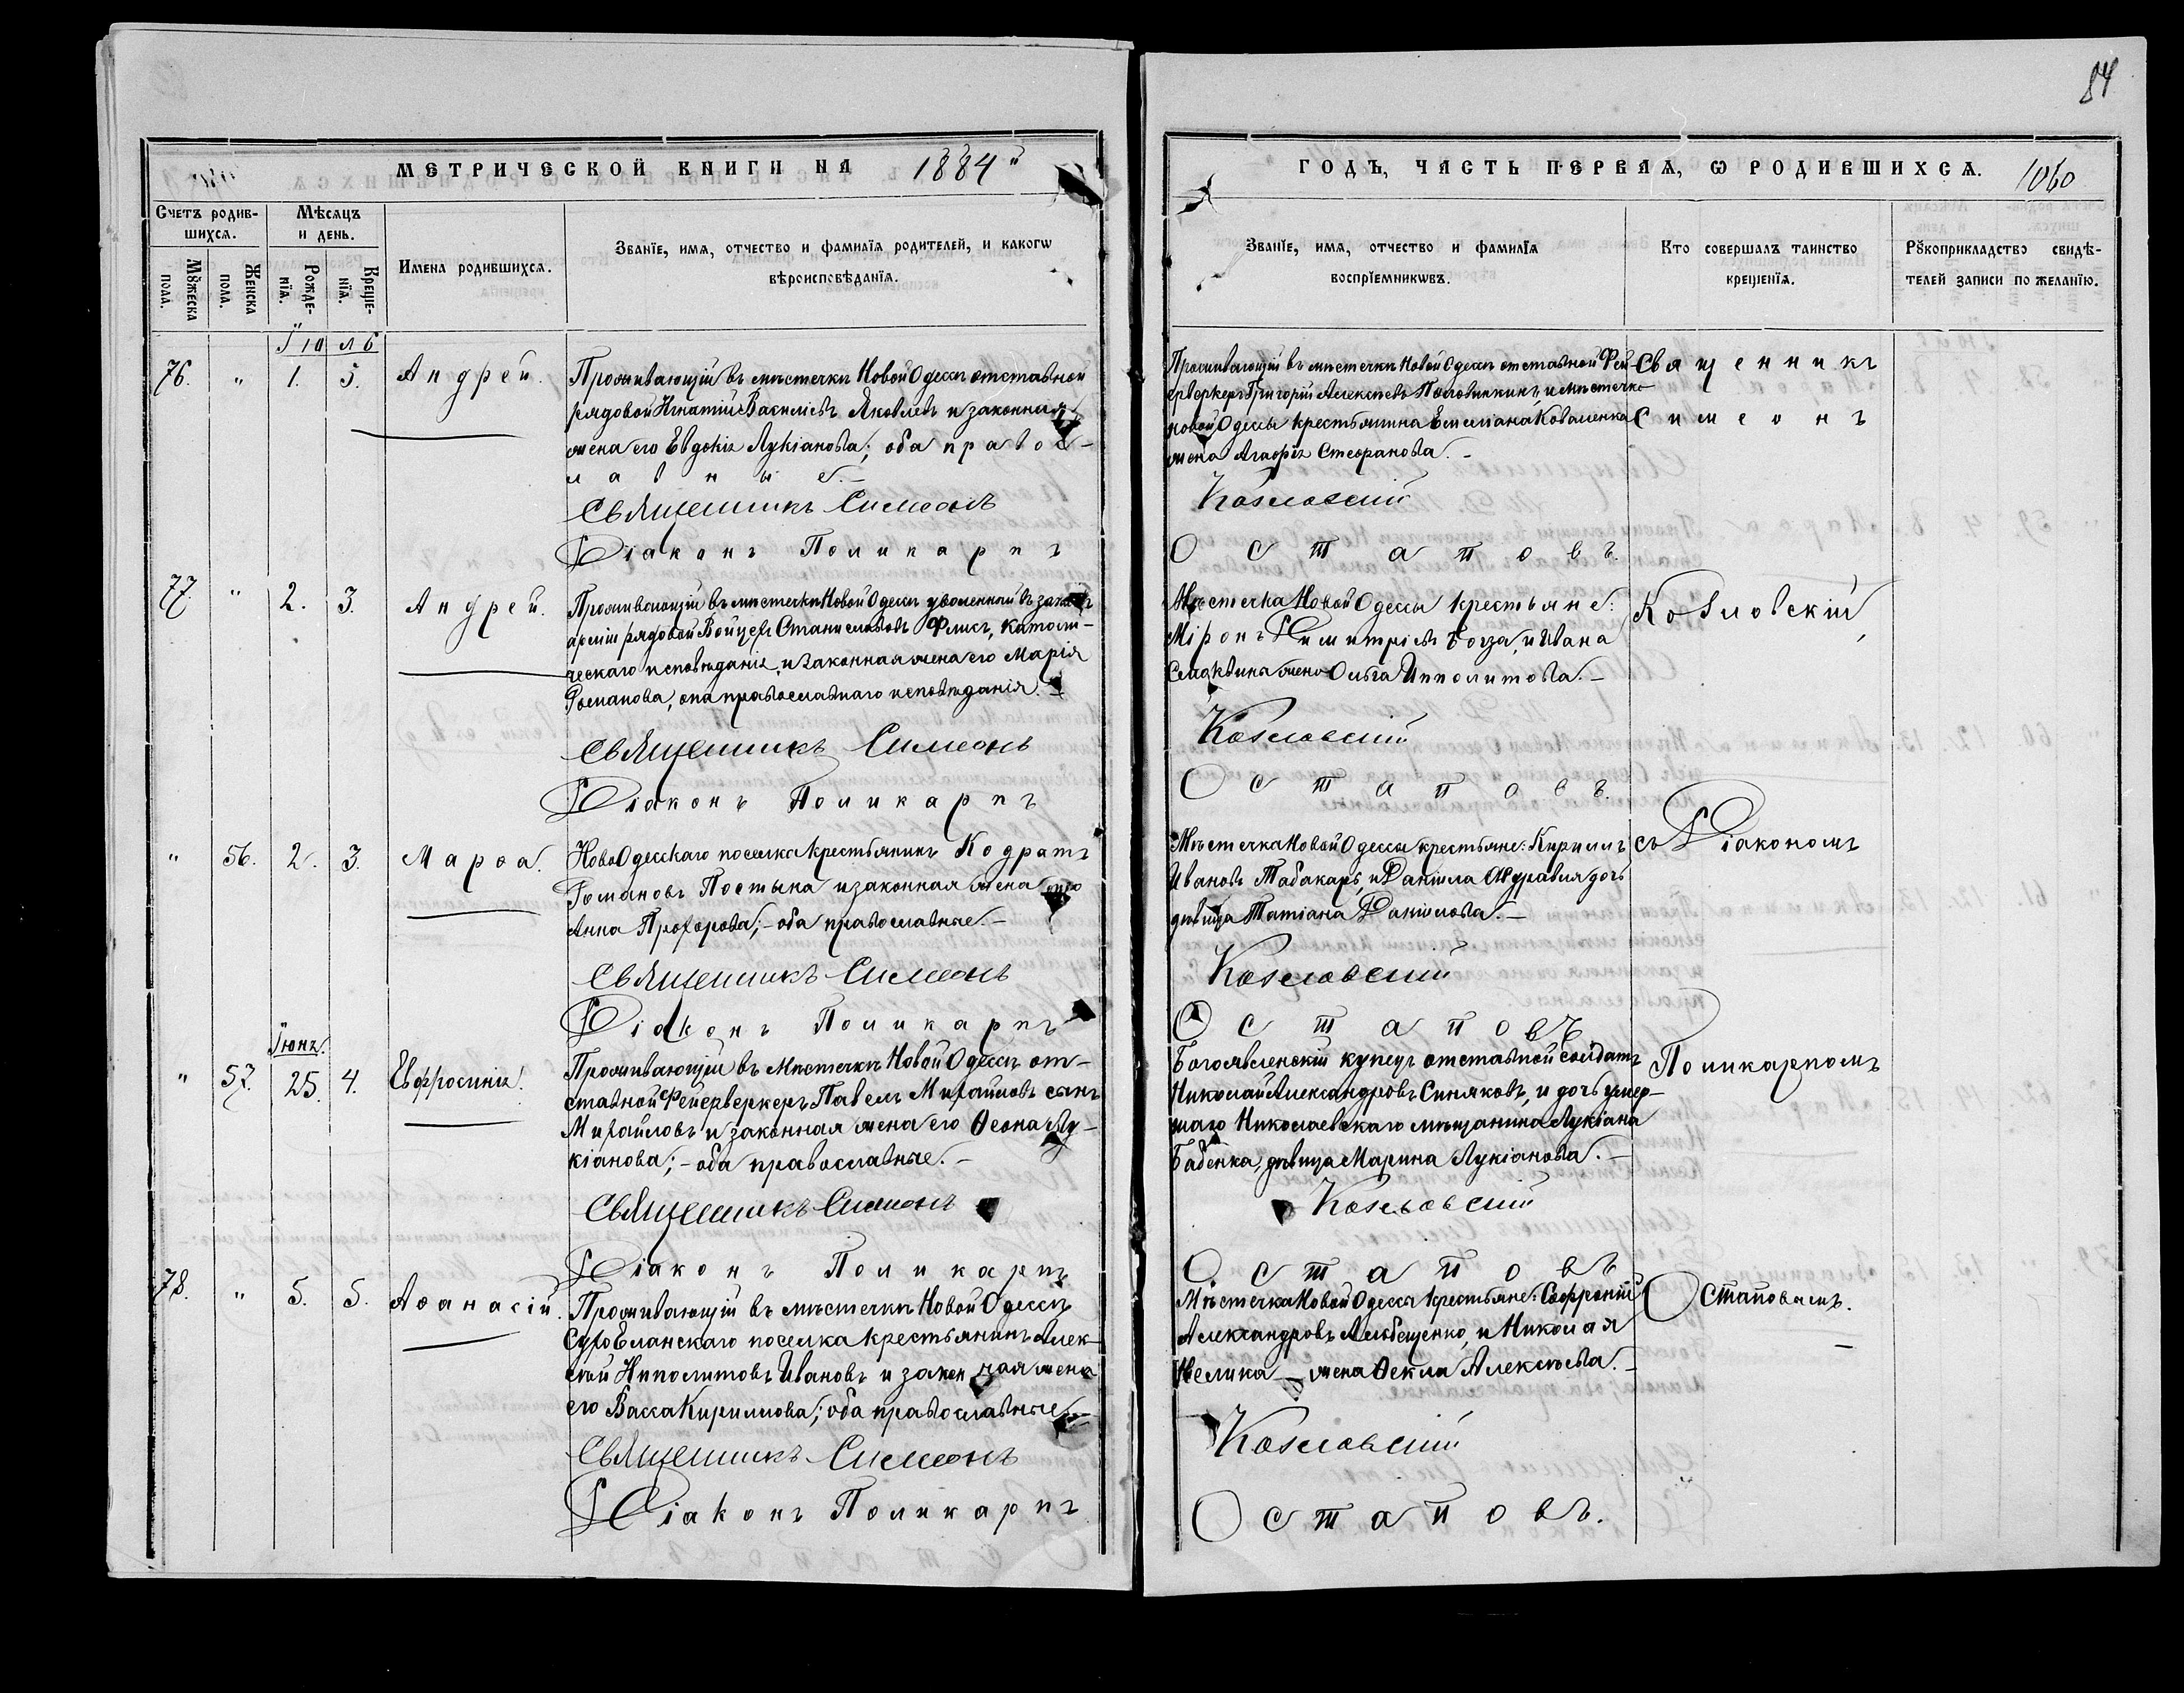 84
МЕТРИЧЕСКОЙ КНИГИ НА 1884й
ГОДЪ, ЧАСТЬ ПЕРВАЯ, Ѡ РОДИВШИХСѦ. 1060
Счетъ родив-
шихсѧ.
Мѣсяцъ
и день.
Мꙋжеска
пола.
Женска
пола.
Рожде-
нїѧ.
Креще-
нїѧ.
Имена родившихсѧ.
Званїе, имѧ, отчество и фамилїѧ родителей, и какогѡ
вѣроисповѣданїѧ.
Званїе, имѧ, отчество и фамилїѧ
воспрїемникѡвъ.
Кто совершалъ таинство
крещенїѧ.
Рꙋкоприкладство свидѣ-
телей записи по желанїю.
Іюль
76. " 1. 5. Андрей.
Проживающій въ мѣстечкѣ Новой Одессѣ отставной
рядовой Игнатій Василіевъ Яковлевъ и законная
жена его Евдокія Лукіанова; оба правос-
лавные.-
Священникъ Симеонъ
Діаконъ Поликарпъ
Проживающій въ мѣстечкѣ Новой Одессѣ отставной Фей-
ерверкеръ Григорій Алексѣевъ Половинкинъ, и мѣстечка
новой Одессы крестьянина Емиліана Коваленка
жена Агафія Стефанова.-
Козловскій
Остаповъ.
Священникъ
Симеонъ
77. " 2. 3. Андрей.
Проживающій въ мѣстечкѣ Новой Одессѣ уволенный въ запасъ
арміи рядовой Войцех Станиславовъ Флисъ, католи-
ческаго исповѣданія, и законная жена его Марія
Романова, она православнаго исповѣданія.-
Священникъ Симеонъ
Діаконъ Поликарпъ
Мѣстечка Новой Одессы крестьяне:
Міронъ Димитріевъ Богза, и Ивана
жена Ольга Ипполитова.-
Козловскій
Остаповъ.
Козловскій
" 56. 2. 3. Марѳа.
НовоОдесскаго поселка крестьянинъ Кодратъ
Романовъ Постыка и законная жена его
Анна Прохорова;- оба православные.-
Священникъ Симеонъ
Діаконъ Поликарпъ
Мѣстечка Новой Одессы крестьяне: Кириллъ
Ивановъ Табакарь, и Даніила Журавля дочь
дѣвица Татіана Даніилова.-
Козловскій
Остаповъ
съ Діакономъ
Іюнь.
" 57. 25. 4. Евфросинія.
Проживающій въ Мѣстечкѣ Новой Одессѣ от-
ставной Фейерверкеръ Павелъ Михайловъ сынъ
Михайловъ и законная жена его Ѳеона Лу-
кіанова;- оба православные.-
Священникъ Симеонъ
Діаконъ Поликарпъ
Богоявленскій купецъ отставной солдатъ
Николай Александровъ Синяковъ, и дочь умер-
шаго Николаевскаго мѣщанина Лукіана
Бабенка, дѣвица Марина Лукіанова.-
Козловскій
Остаповъ
Поликарпомъ
78. " 5. 5. Аѳанасій.
Проживающій въ мѣстечкѣ Новой Одессѣ
СухоЕланскаго поселка крестьянинъ Алек-
сѣй Ипполитовъ Ивановъ и законная жена
его Васса Кириллова; оба православные.-
Священникъ Симеонъ
Діаконъ Поликарпъ
Мѣстечка Новой Одессы крестьяне: Софроній
Александровъ и Николая
жена Ѳекла Алексѣева.-
Козловскій
Остаповъ.
Остаповымъ.